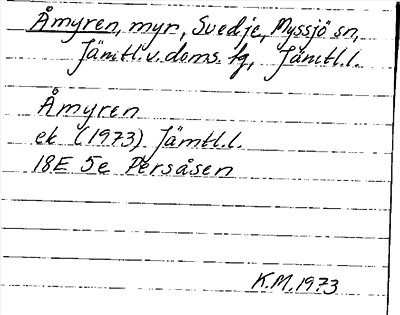 Åmyren, myr, Svedje, Myssjö sn,
Jämtl.v.doms. tg, Jämtl.l.
Åmyren
ek (1973) Jämtl.l.
18E 5e Persåsen
K.M. 1973